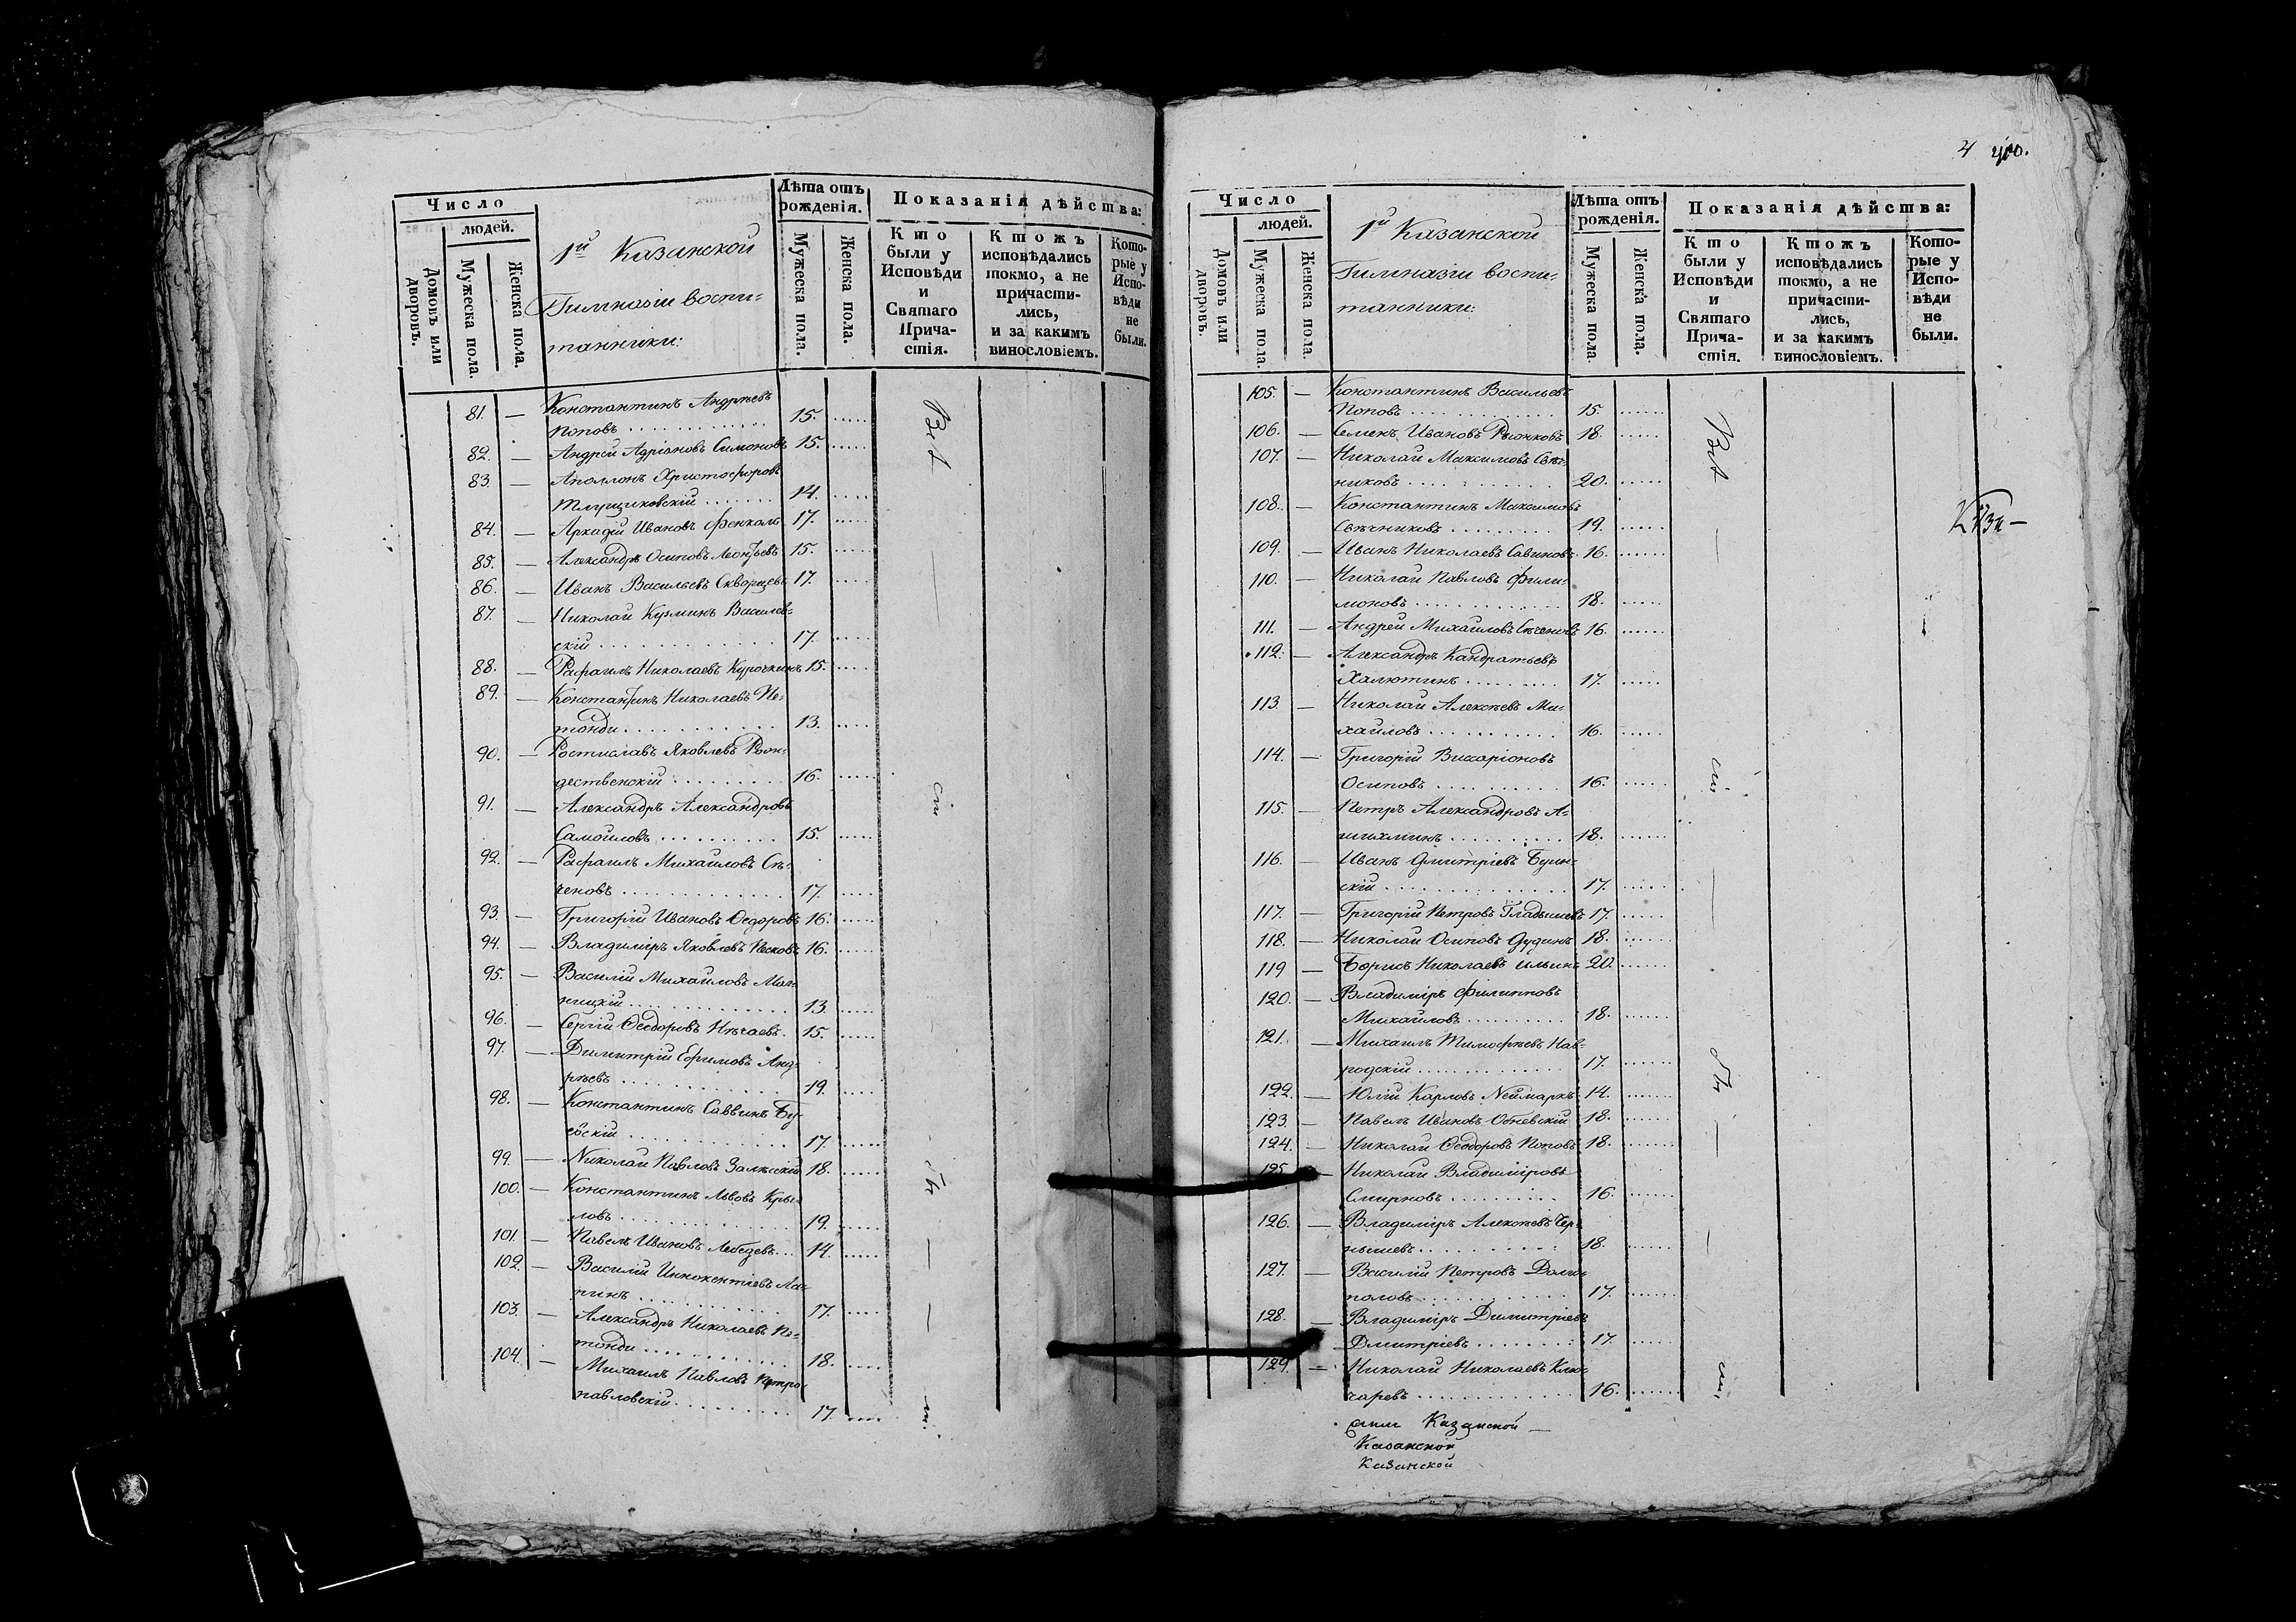 Число
людей.
Домовъ или дворовъ.
Мужеска пола.
Женска пола.
1й Казанской
Гимназіи воспи=
танники:
Лѣта отъ рожденія.
Мужеска пола.
Женска пола.
Показанія дѣйства:
Кто были у Исповѣди и Святаго Прича-стія.
Ктожъ исповѣдались токмо, а не причасти-лись, и за какимъ винословіемъ.
Кото-рые у Испо-вѣди не были.
81. — Константинъ Андреевъ
Поповъ . . . 15.
82. — Андрей Адріановъ Симоновъ 15.
83. — Аполлонъ Христофоровъ
14.
84. — Аркадій Ивановъ Френколь 17.
85. — Александръ Осиповъ Леонтьевъ 15.
86. — Иванъ Васильевъ Скворцевъ 17.
87. — Николай Кузминъ Василев=
скій . . . 17.
88. — Рафаилъ Николаевъ Курочкинъ 15.
89. — Константинъ Николаевъ Пе=
тонди . . . 13.
90. — Ростиславъ Яковлевъ Рож=
дественскій . . . 16.
91. — Александръ Александровъ
Самойловъ . . . 15.
92. — Рафаилъ Михайловъ Сѣ=
ченовъ . . . 17.
93. — Григорій Ивановъ Ѳедоровъ 16.
94. — Владиміръ Яковлевъ Песковъ 16.
95. — Василій Михайловъ
ницкій . . . 13.
96. — Сергій Ѳеодоровъ Нѣчаевъ . 15.
97. — Димитрій Ефимовъ Анд=
рѣевъ . . . 19.
98. — Константинъ Саввинъ
17.
99. — Николай Павловъ Залѣскій 18.
100. — Константинъ Львовъ Кры=
ловъ . . . 19.
101. — Павелъ Ивановъ Лебедевъ . . . 14.
102. — Василій Иннокентіевъ Ла=
пинъ . . . 17.
103. — Александръ Николаевъ Пе=
тонди . . . 18.
104. — Михаилъ Павловъ Петро=
павловскій . . . 17.
Всѣ
сіи
4
Число
людей.
Домовъ или дворовъ.
Мужеска пола.
Женска пола.
1й Казанской
Гимназіи воспи=
танники:
Лѣта отъ рожденія.
Мужеска пола.
Женска пола.
Показанія дѣйства:
Кто были у Исповѣди и Святаго Прича-стія.
Ктожъ исповѣдались токмо, а не причасти-лись, и за какимъ винословіемъ.
Кото-рые у Испо-вѣди не были.
105. — Константинъ Васильевъ
Поповъ . . . 15.
106. — Семенъ Ивановъ Рыжковъ 18.
107. — Николай Максимовъ Свѣч=
никовъ . . . 20.
108. — Константинъ Максимовъ
Свѣчниковъ . . . 19.
109. — Иванъ Николаевъ Савиновъ 16.
110. — Николай Павловъ Фили=
моновъ . . . 18.
111. — Андрей Михайловъ Сѣченовъ 16.
112. — Александръ Кандратьевъ
Халютинъ . . . 17.
113. — Николай Алексѣевъ Ми=
хайловъ . . . 16.
114. — Григорій Виссаріоновъ
Осиповъ . . . 16.
115. — Петръ Александровъ А=
18.
116. — Иванъ Дмитріевъ Буин=
скій . . . 17.
117. — Григорій Петровъ Гладышевъ 17.
118. — Николай Осиповъ Дудинъ 18.
119 — Борисъ Николаевъ Ильинъ 20.
120. — Владиміръ Филипповъ
Михайловъ . . . 18.
121. — Михаилъ Тимофѣевъ Нав=
родскій . . . 17.
122. — Юлій Карловъ Неймаркъ 14.
123. — Павелъ Ивановъ 18.
124. — Николай Ѳеодоровъ Поповъ 18.
125. — Николай Владиміровъ
Смирновъ . . . 16.
126. — Владиміръ Алексѣевъ Чер=
нышевъ . . . 18.
127. — Василій Петровъ Долго=
половъ . . . 17.
128. — Владиміръ Димитріевъ
Дмитріевъ . . . 17.
129. — Николай Николаевъ Клю=
чаревъ . . . 16.
Всѣ
сіи
Казанской —
Казанской
Казанской